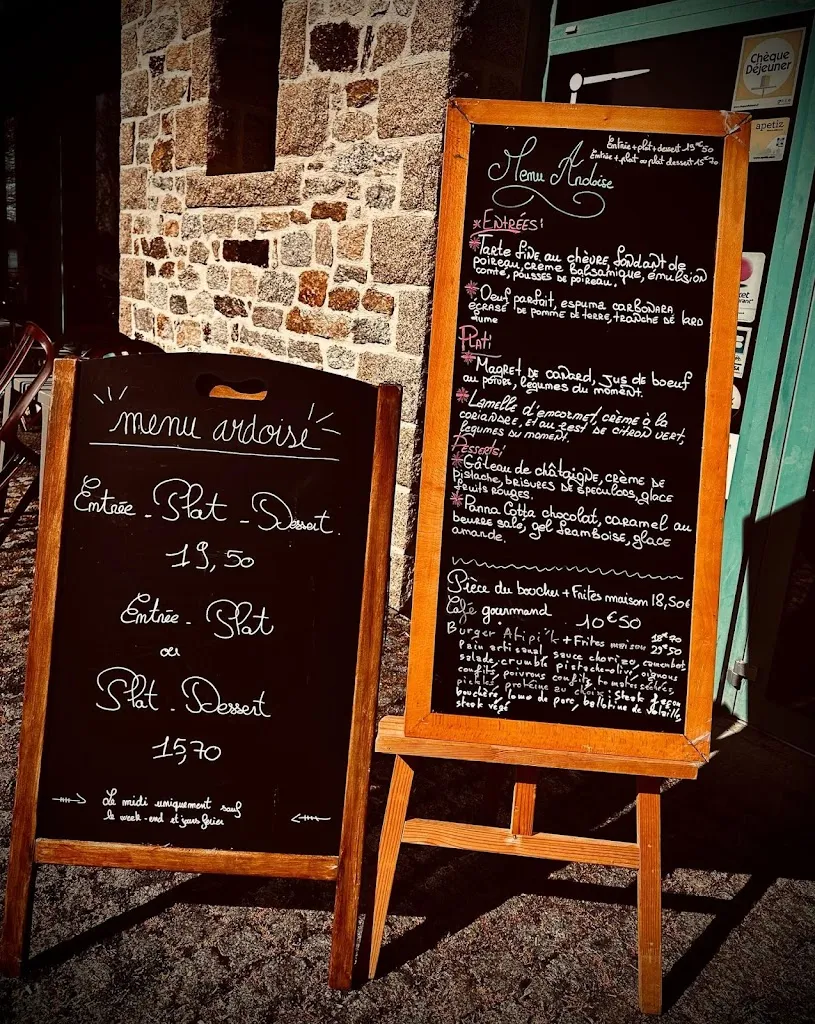 menu ardoise
Entrée - Plat - Dessert.
19,50
Entrée - Plat
ou
Plat - Dessert
15,70
Le midi uniquement sauf
le week-end et jours férier
Entrée + plat + dessert 19€50
Entrée + plat ou plat dessert 15€70
Menu Ardoise
*ENTRÉES:
*Tarte fine au chèvre, fondant de
poireau, crème balsamique, émulsion
comté, pousses de poireau.
*Oeuf parfait, espuma carbonara
écrasé de pomme de terre, tranche de lard
fumé
Plat:
*Magret de canard, jus de boeuf
au poivre, légumes du moment.
*Lamelle d'encornet, crème à la
coriandre, et au zest de citron vert,
légumes du moment.
Desserts:
*Gâteau de châtaigne, crème de
pistache, brisures de spéculoos, glace
fruits rouges.
*Panna Cotta chocolat, caramel au
beurre salé, gel framboise, glace
amande.
Pièce du boucher + Frites maison 18,50€
Café gourmand 10€50
Burger Atipi'k + Frites maison
Pain artisanal sauce chorizo, camembert
salade, crumble pistache-olive, oignons
confits, poivrons confits, tomates séchées,
pickles, protéine au choix: steak façon
bouchère, lomo de porc, ballotine de volaille,
steak végé
Chèque
Déjeuner
apetiz